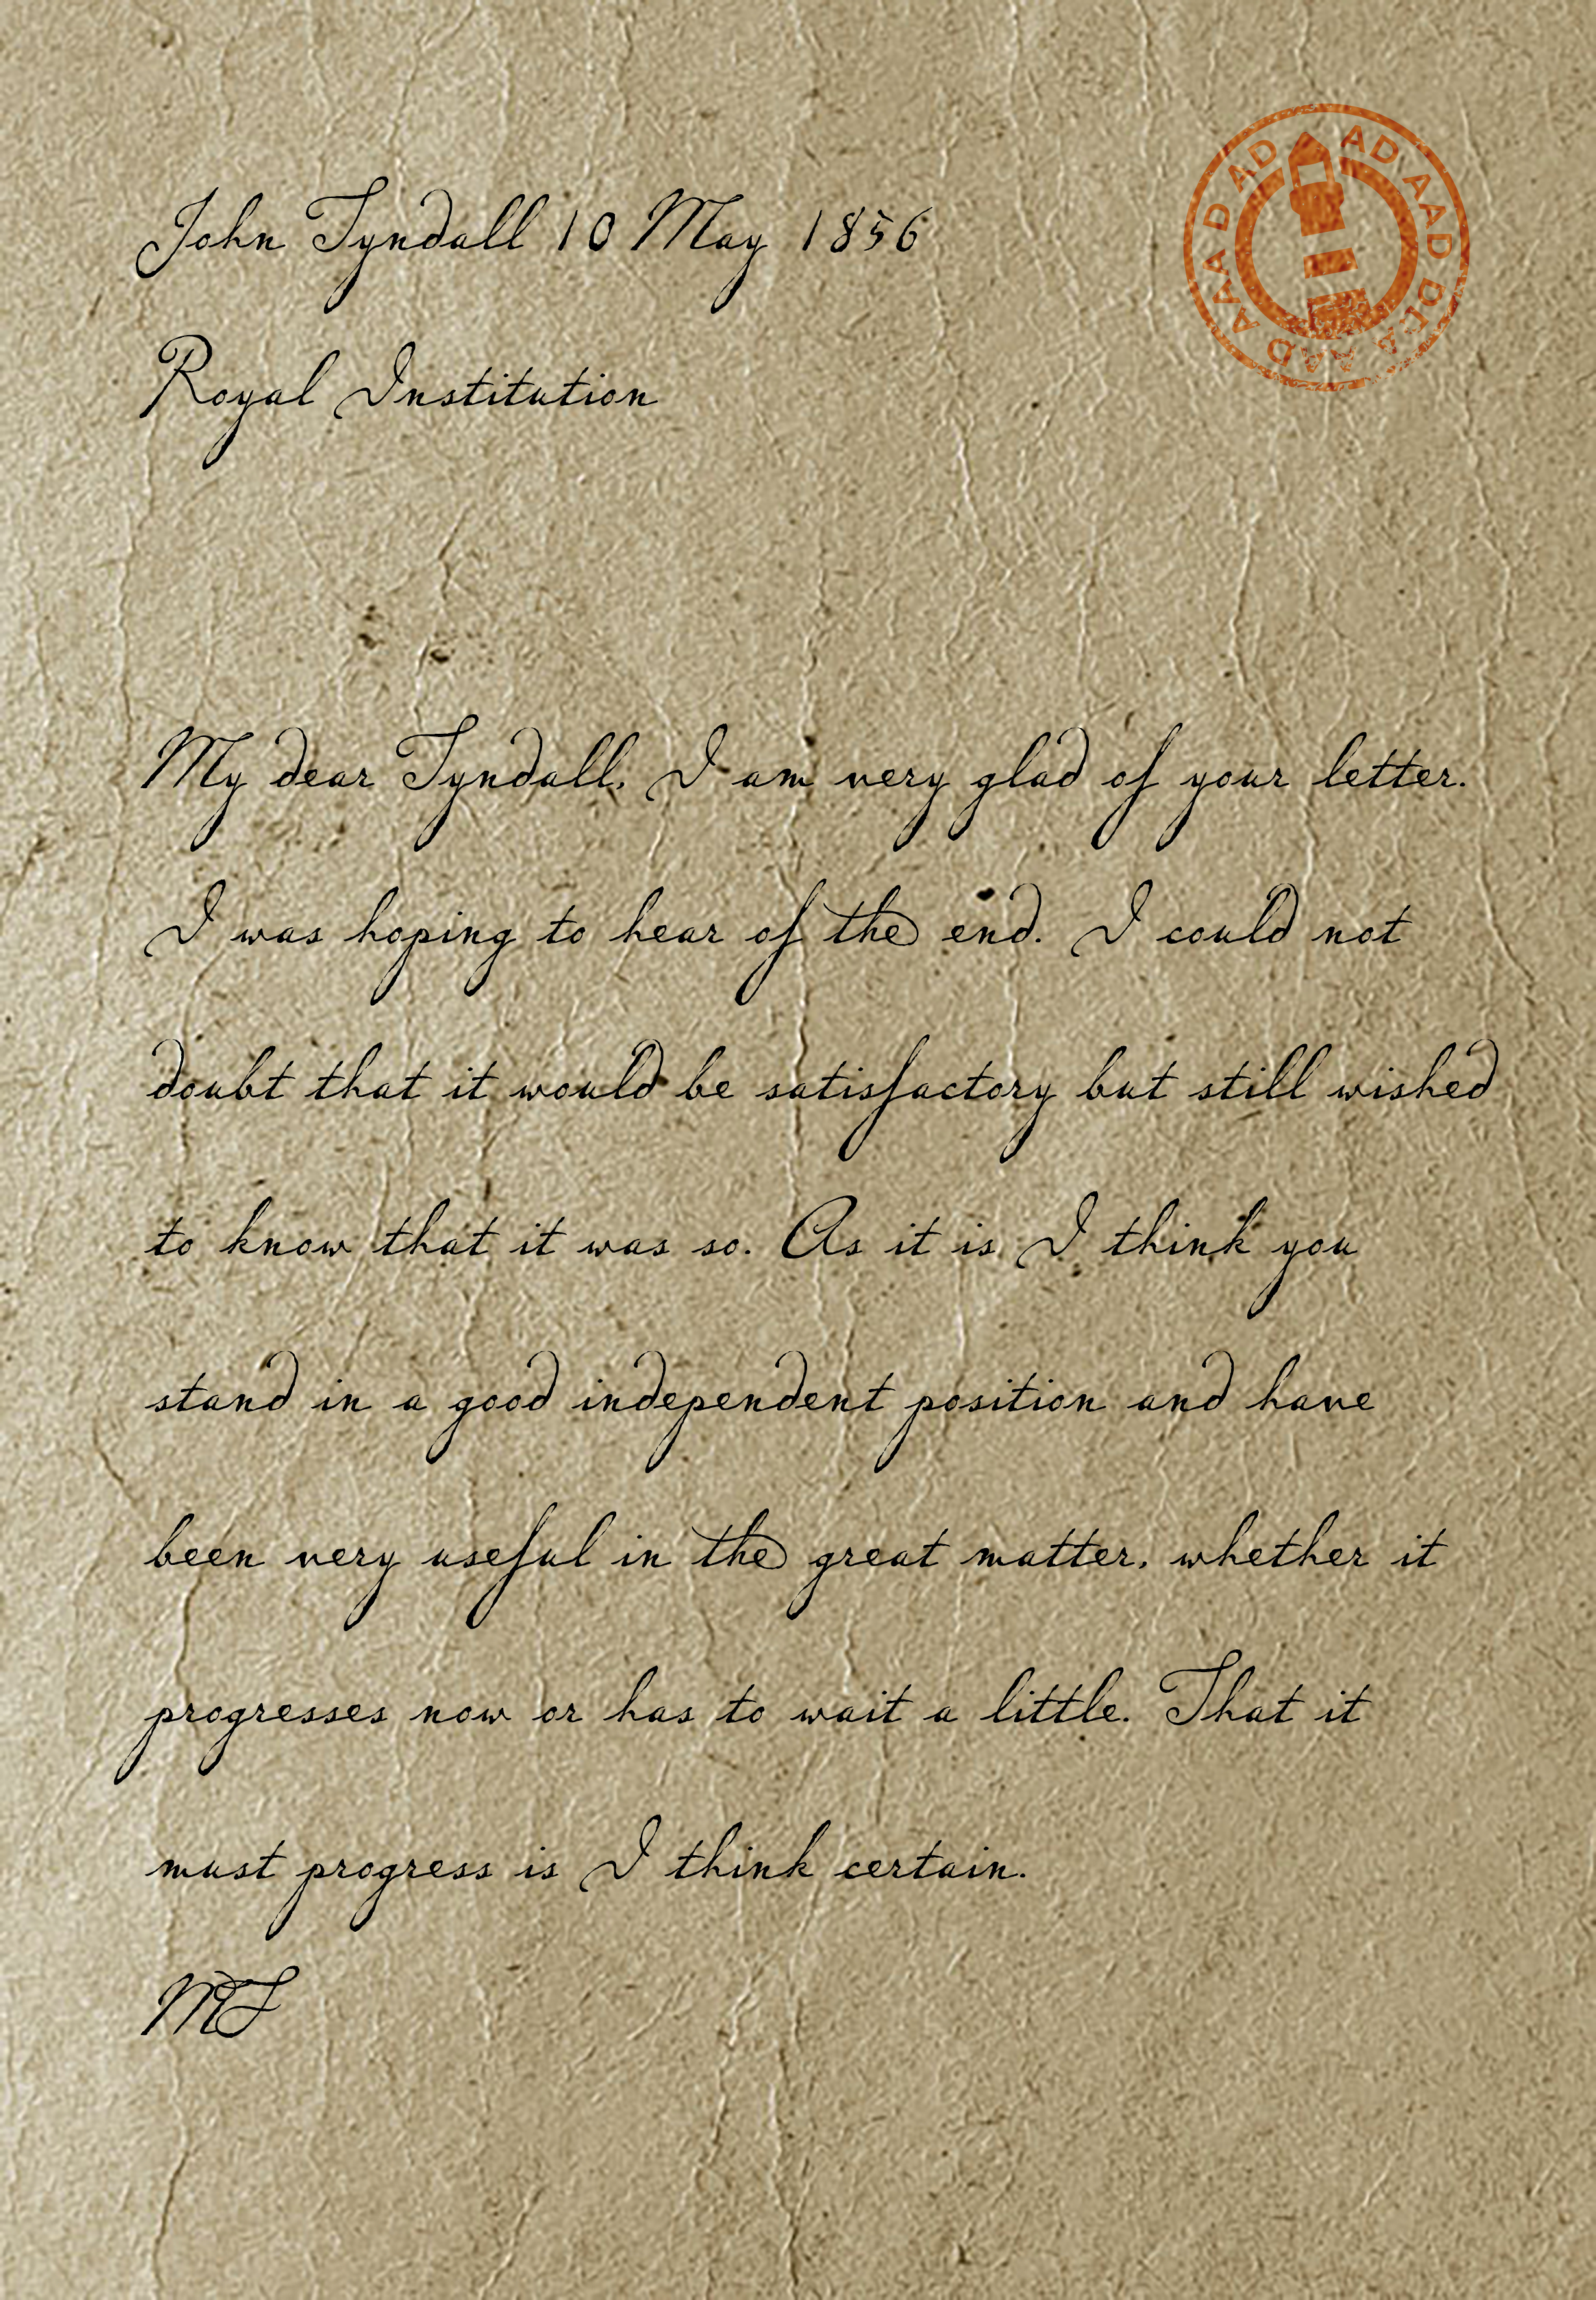 John Tyndall 10 May 1856
Royal Institution
My dear Tyndall, I am very glad of your letter.
I was hoping to hear of the end. I could not
doubt that it would be satisfactory but still wished
to know that it was so. As it is I think you
stand in a good independent position and have
been very useful in the great matter, whether it
progresses now or has to wait a little. That it
must progress is I think certain.
MF